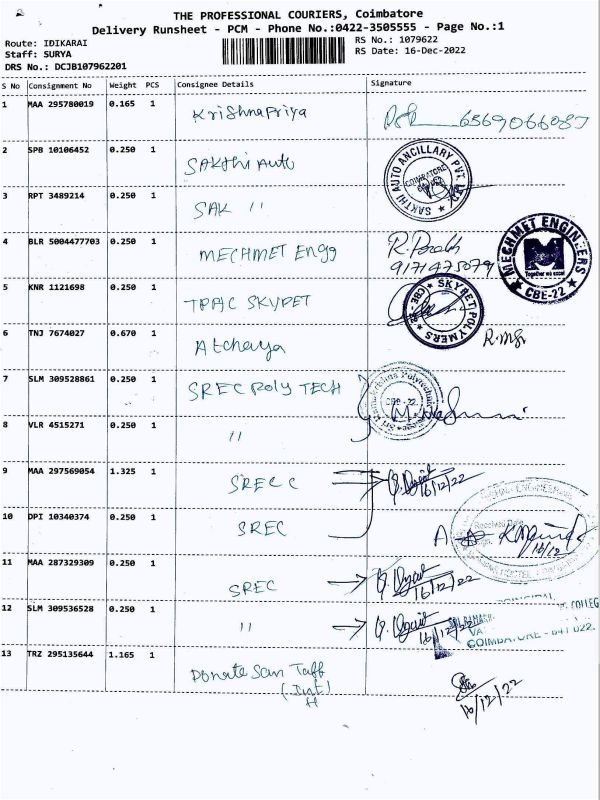 THE PROFESSIONAL COURIERS, Coimbatore
Delivery Runsheet - PCM - Phone No.:0422-3505555 - Page No.:1
Route: IDIKARAI
Staff: SURYA
DRS No.: DCJB107962201
RS No.: 1079622
RS Date: 16-Dec-2022
S No Consignment No Weight PCS Consignee Details Signature
1 MAA 295780019 0.165 1 Krishnapriya
2 SPB 10106452 0.250 1 SAKthi Auto
SAKTHI AUTO ANCILLARY PVT.
COIMBATORE
3 RPT 3489214 0.250 1 SAK 11
4 BLR 5004477703 0.250 1 MECHMET Engg
MECHMET ENGINEERS
M
Together we excel
CBE-22
5 KNR 1121698 0.250 1 SKYPET
SKYPET POLYMERS
CBE - 22
6 TNJ 7674027 0.670 1 Atchaya
7 SLM 309528861 0.250 1 SREC Poly TECH
CBE - 22
8 VLR 4515271 0.250 1 11
9 MAA 297569054 1.325 1 SREC C
16/12/22
10 DPI 10340374 0.250 1 SREC
16/12
11 MAA 287329309 0.250 1 SREC
16/12/22
12 SLM 309536528 0.250 1 11
16/12/22
COIMBATORE - 641 022.
13 TRZ 295135644 1.165 1
16/12/22